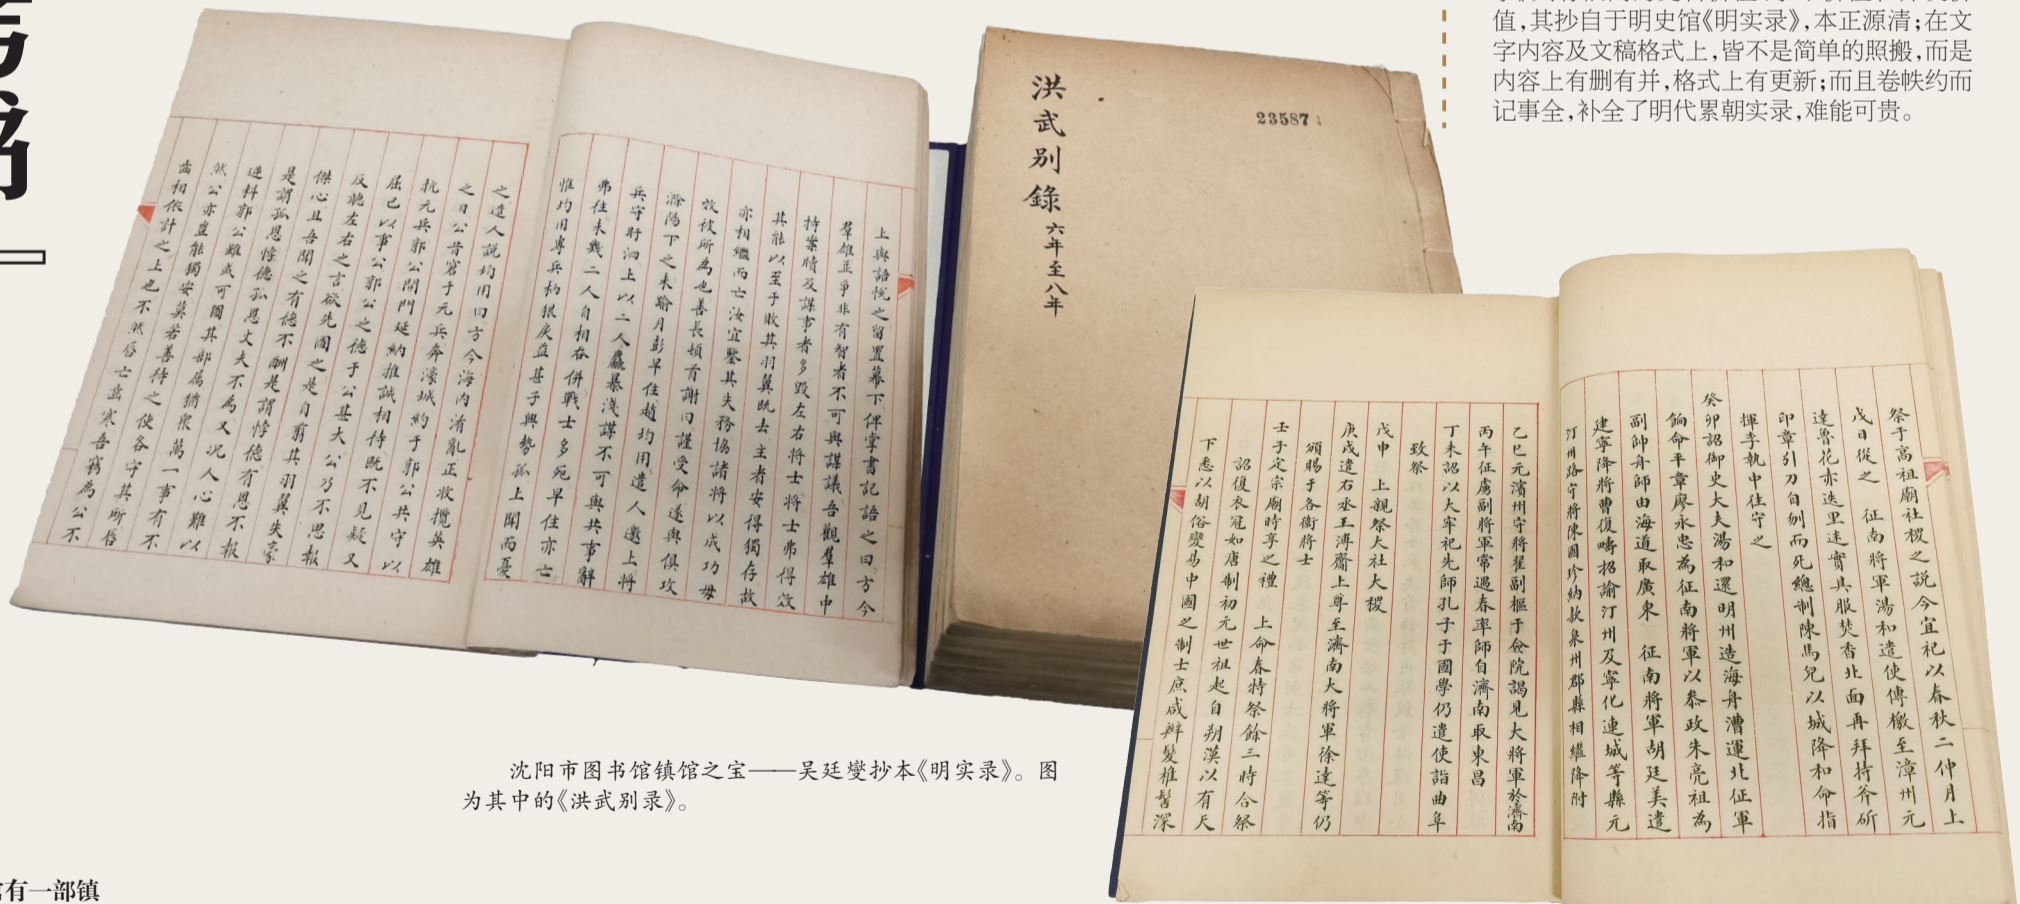 值，其抄自于明史馆《明实录》，本正源清；在文
字内容及文稿格式上，皆不是简单的照搬，而是
内容上有删有并，格式上有更新；而且卷帙约而
记事全，补全了明代累朝实录，难能可贵。
上與語悅之留置幕下俾掌書記語之曰方今
羣雄並爭非有智者不可與謀議吾觀羣雄中
持案牘及謀事者多毀左右將士將士弗得效
其能以至于敗其羽翼既去主者安得獨存故
亦相繼而亡汝宜鑒其失務協諸將以成功毋
效彼所為也善長頓首謝曰謹受命遂與俱攻
滁陽下之未踰月彭早住趙均用遣人邀上將
兵守盱泗上以二人麤暴淺謀不可與共事辭
弗往未幾二人自相吞併戰士多死早住亦亡
惟均用專兵柄狠戾益甚子興勢孤上聞而憂
之遣人説均用曰方今海内淆亂正收攬英雄
之日公昔窘于元兵奔濠城約于郭公共守以
抗元兵郭公開門延納推誠相待既不見疑又
屈己以事公郭公之德于公甚大公乃不思報
反聽左右之言欲先圖之是自翦其羽翼失豪
傑心且吾聞之有德不酬是謂悖德有恩不報
是謂孤恩悖德孤恩丈夫不為又况人心難以
逆料郭公雖或可圖其部属猶衆萬一事有不
然公亦豈能獨安莫若善待之使各守其所唇
齒相依計之上也不然唇亡齒寒吾竊為公不
洪武别錄 六年至八年
23587
祭于高祖廟社稷之説今宜祀以春秋二仲月上
戊日從之 征南將軍湯和遣使傳檄至漳州元
達魯花赤迭里迷實具服焚香北面再拜持斧斫
印章引刀自刎而死總制陳馬兒以城降和命指
揮李執中往守之
癸卯詔御史大夫湯和還明州造海舟漕運北征軍
餉命平章廖永忠為征南將軍以叅政朱亮祖為
副帥舟師由海道取廣東 征南將軍胡廷美遣
建寧降將曹復疇招諭汀州及寧化連城等縣元
汀州路守將陳國珍納款泉州郡縣相繼降附
乙巳元濱州守將翟副樞于僉院謁見大將軍於濟南
丙午征虜副將軍常遇春率師自濟南取東昌
丁未詔以大牢祀先師孔子于國學仍遣使詣曲阜
致祭
戊申 上親祭大社大稷
庚戌遣右丞王溥齎上尊至濟南大將軍徐達等仍
頒賜于各衛將士
壬子定宗廟時享之禮 上命春特祭餘三時合祭
詔復衣冠如唐制初元世祖起自朔漠以有天
下悉以胡俗變易中國之制士庶咸辮髮椎髻深
沈阳市图书馆镇馆之宝——吴廷燮抄本《明实录》。图
为其中的《洪武别录》。
有一部镇